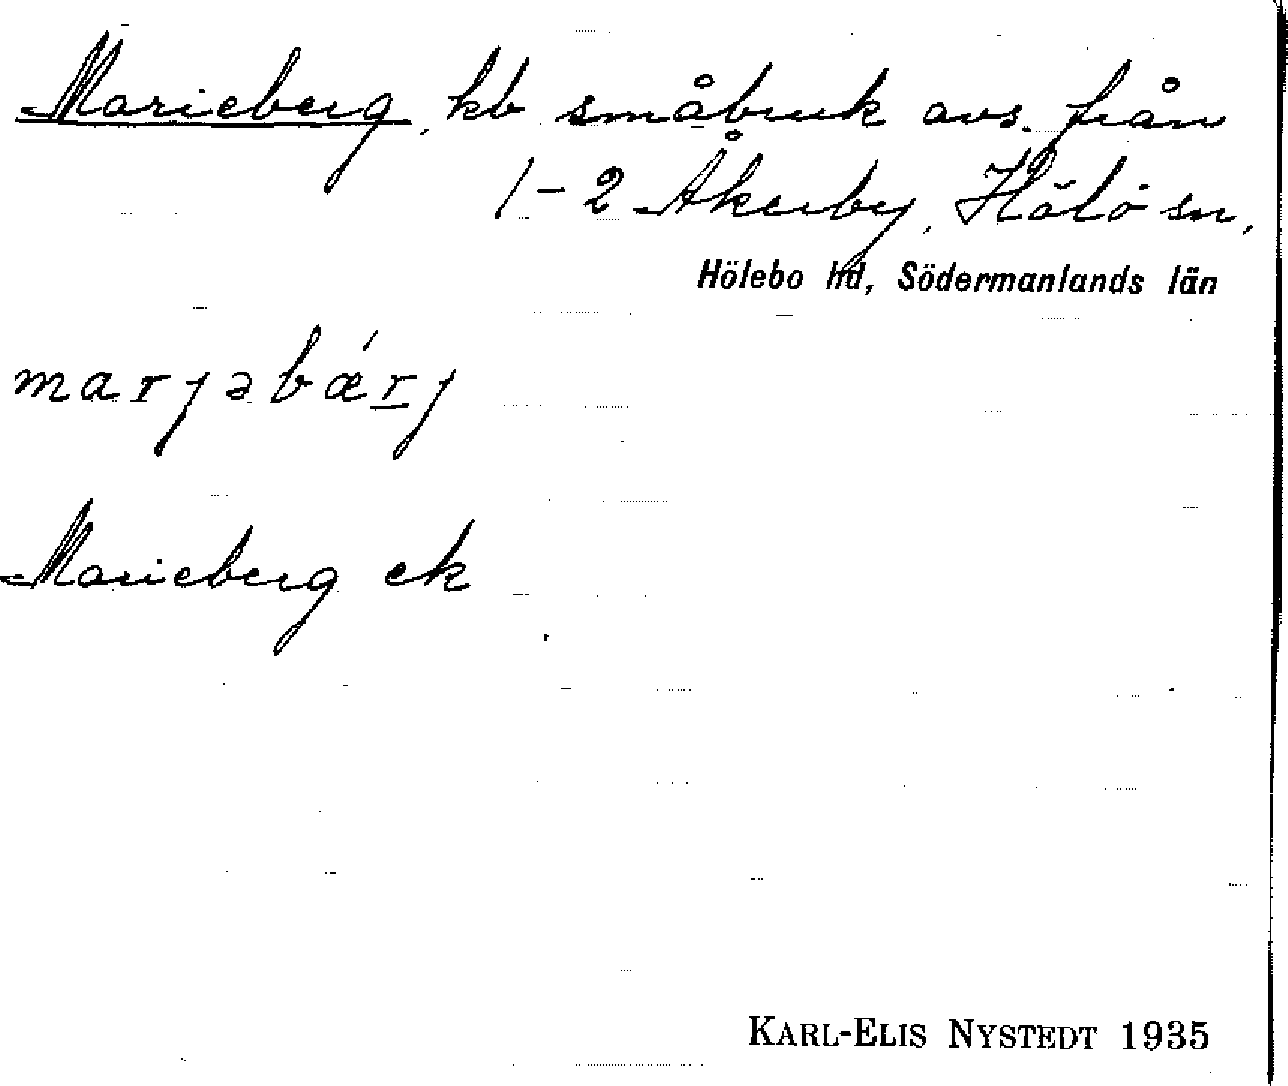 Marieberg, kb småbruk avs. från
1-2 Åkerby, Hölö sn,
Hölebo hd, Södermanlands län
marjəbǽrj
Marieberg ek
KARL-ELIS NYSTEDT 1935